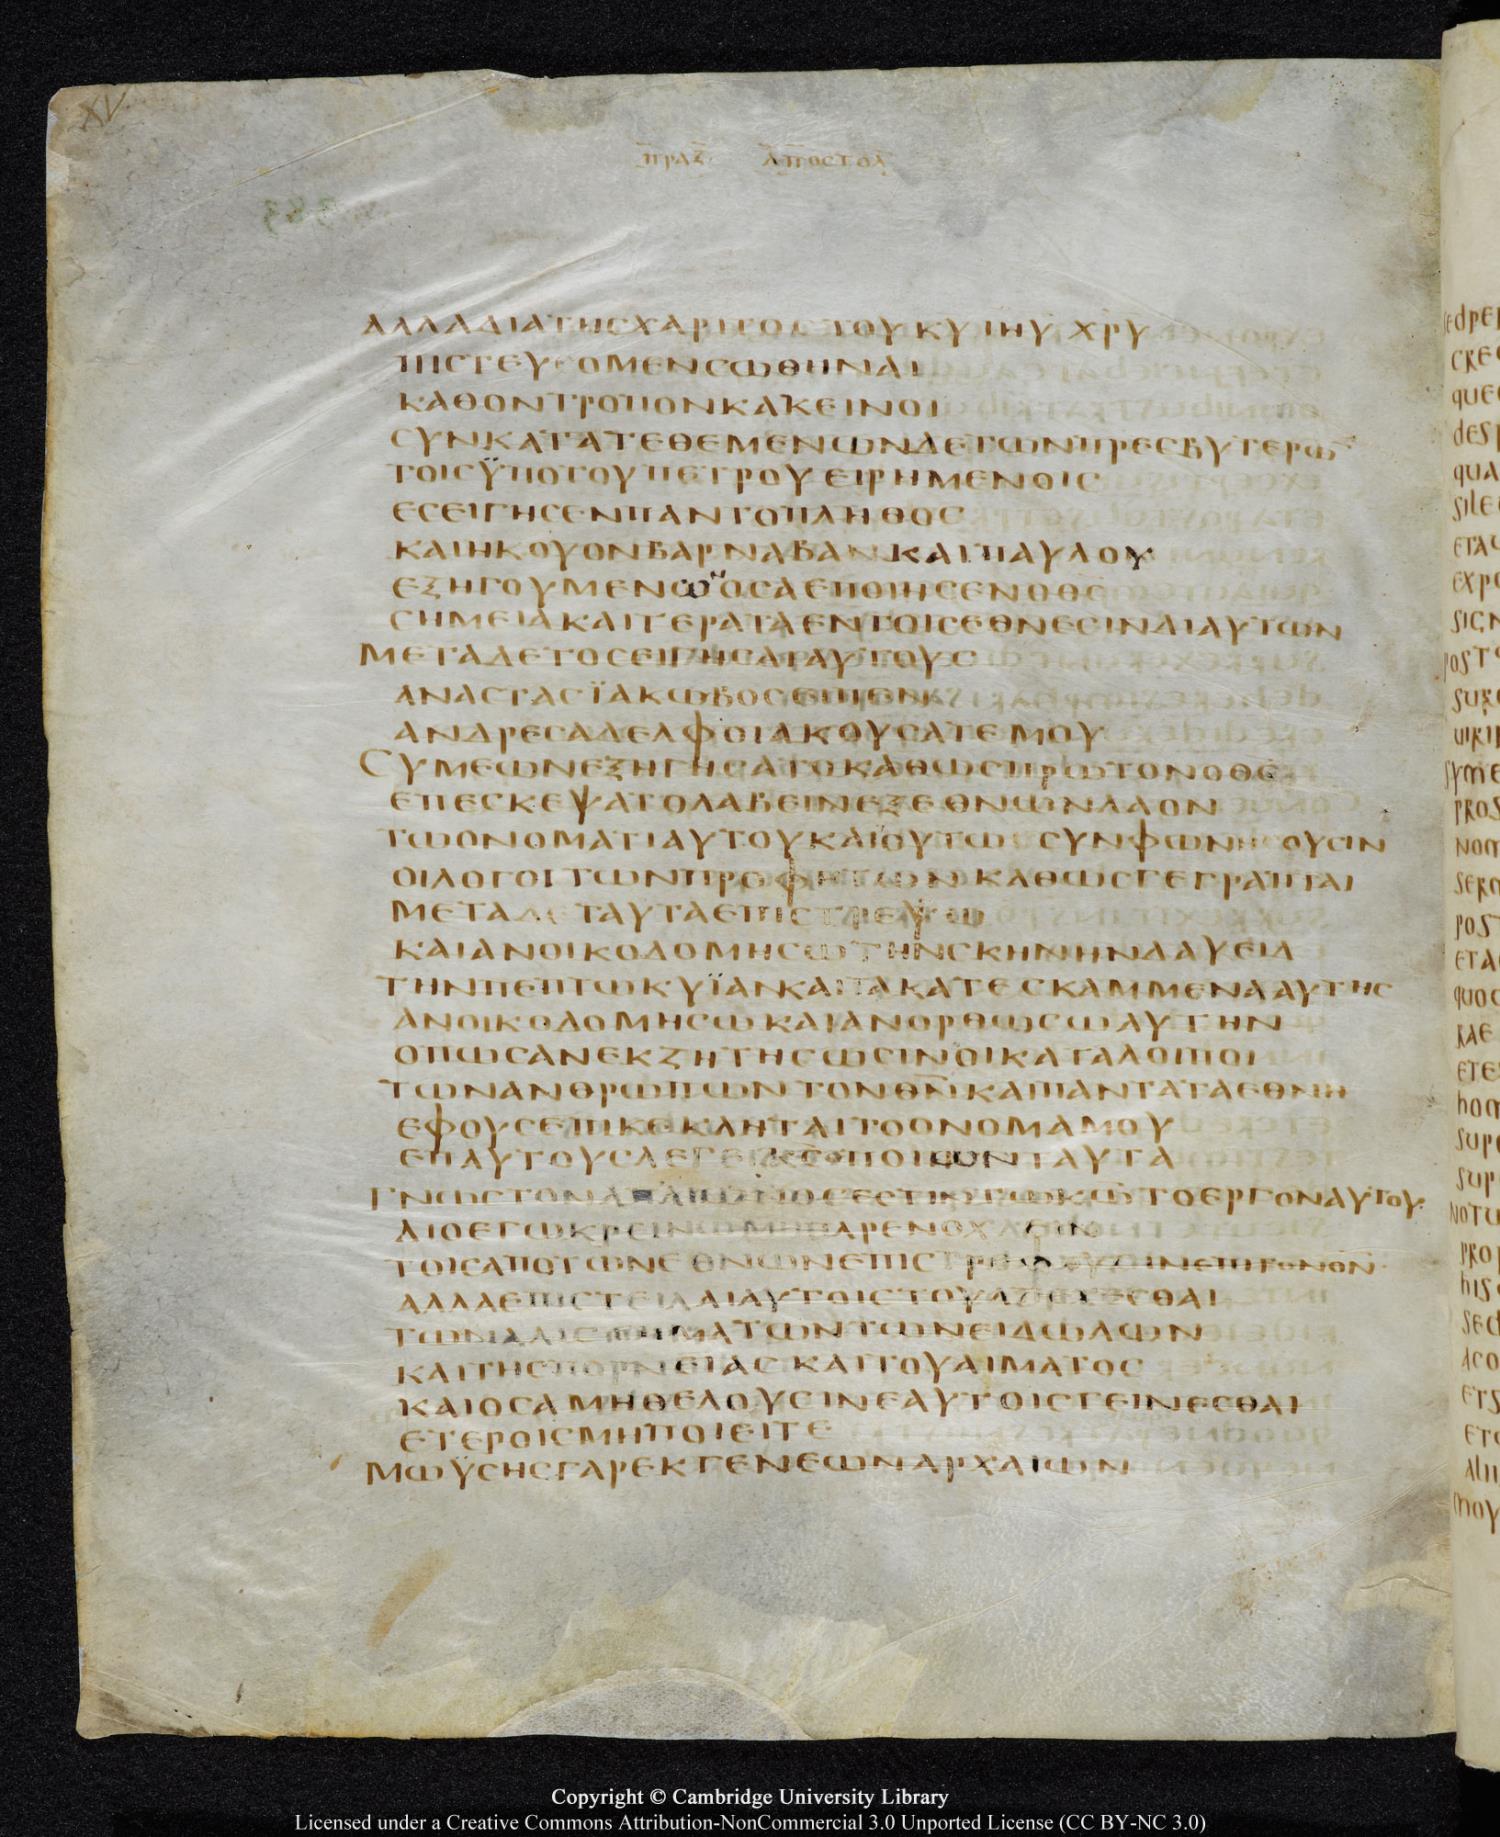 XV
ΠΡΑΞ ΑΠΟΣΤΟΛ
ΑΛΛΑΔΙΑΤΗϹΧΑΡΙΤΟϹΤΟΥΚΥΙΗΥΧΡΥ
ΠΙϹΤΕΥϹΟΜΕΝϹΩΘΗΝΑΙ
ΚΑΘΟΝΤΡΟΠΟΝΚΑΚΕΙΝΟΙ
ϹΥΝΚΑΤΑΤΕΘΕΜΕΝΩΝΔΕΤΩΝΠΡΕϹΒΥΤΕΡΩ̅
ΤΟΙϹΫΠΟΤΟΥΠΕΤΡΟΥΕΙΡΗΜΕΝΟΙϹ
ΕϹΕΙΓΗϹΕΝΠΑΝΤΟΠΛΗΘΟϹ
ΚΑΙΗΚΟΥΟΝΒΑΡΝΑΒΑΝΚΑΙΠΑΥΛΟΥ
ΕΞΗΓΟΥΜΕΝΩΝΟϹΑΕΠΟΙΗϹΕΝΟΘϹ
ϹΗΜΕΙΑΚΑΙΤΕΡΑΤΑΕΝΤΟΙϹΕΘΝΕϹΙΝΔΙΑΥΤΩΝ
ΜΕΤΑΔΕΤΟϹΕΙΓΗϹΑΙΑΥΤΟΥϹ
ΑΝΑϹΤΑϹΪΑΚΩΒΟϹΕΙΠΕΝ
ΑΝΔΡΕϹΑΔΕΛΦΟΙΑΚΟΥϹΑΤΕΜΟΥ
ϹΥΜΕΩΝΕΞΗΓΗϹΑΤΟΚΑΘΩϹΠΡΩΤΟΝΟΘϹ
ΕΠΕϹΚΕΨΑΤΟΛΑΒΕΙΝΕΞΕΘΝΩΝΛΑΟΝ
ΤΩΟΝΟΜΑΤΙΑΥΤΟΥΚΑΙΟΥΤΩϹϹΥΝΦΩΝΗϹΟΥϹΙΝ
ΟΙΛΟΓΟΙΤΩΝΠΡΟΦΗΤΩΝΚΑΘΩϹΓΕΓΡΑΠΤΑΙ
ΜΕΤΑΔΕΤΑΥΤΑΕΠΙϹΤΡΕΨΩ
ΚΑΙΑΝΟΙΚΟΔΟΜΗϹΩΤΗΝϹΚΗΝΗΝΔΑΥΕΙΔ
ΤΗΝΠΕΠΤΩΚΥΪΑΝΚΑΙΤΑΚΑΤΕϹΚΑΜΜΕΝΑΑΥΤΗϹ
ΑΝΟΙΚΟΔΟΜΗϹΩΚΑΙΑΝΟΡΘΩϹΩΑΥΤΗΝ
ΟΠΩϹΑΝΕΚΖΗΤΗϹΩϹΙΝΟΙΚΑΤΑΛΟΙΠΟΙ
ΤΩΝΑΝΘΡΩΠΩΝΤΟΝΘΝΚΑΙΠΑΝΤΑΤΑΕΘΝΗ
ΕΦΟΥϹΕΠΙΚΕΚΛΗΤΑΙΤΟΟΝΟΜΑΜΟΥ
ΕΠΑΥΤΟΥϹΛΕΓΕΙΚϹΠΟΙΩΝΤΑΥΤΑ
ΓΝΩϹΤΟΝΑΠΑΙΩΝΟϹΕϹΤΙΝΤΩΚΩΤΟΕΡΓΟΝΑΥΤΟΥ
ΔΙΟΕΓΩΚΡΕΙΝΩΜΗΠΑΡΕΝΟΧΛΕΙΝ
ΤΟΙϹΑΠΟΤΩΝΕΘΝΩΝΕΠΙϹΤΡΕΦΟΥϹΙΝΕΠΙΤΟΝΘΝ
ΑΛΛΑΕΠΙϹΤΕΙΛΑΙΑΥΤΟΙϹΤΟΥΑΠΕΧΕϹΘΑΙ
ΤΩΝΑΛΙϹΓΗΜΑΤΩΝΤΩΝΕΙΔΩΛΩΝ
ΚΑΙΤΗϹΠΟΡΝΕΙΑϹΚΑΙΤΟΥΑΙΜΑΤΟϹ
ΚΑΙΟϹΑΜΗΘΕΛΟΥϹΙΝΕΑΥΤΟΙϹΓΕΙΝΕϹΘΑΙ
ΕΤΕΡΟΙϹΜΗΠΟΙΕΙΤΕ
ΜΩΫϹΗϹΓΑΡΕΚΓΕΝΕΩΝΑΡΧΑΙΩΝ
Copyright © Cambridge University Library
Licensed under a Creative Commons Attribution-NonCommercial 3.0 Unported License (CC BY-NC 3.0)